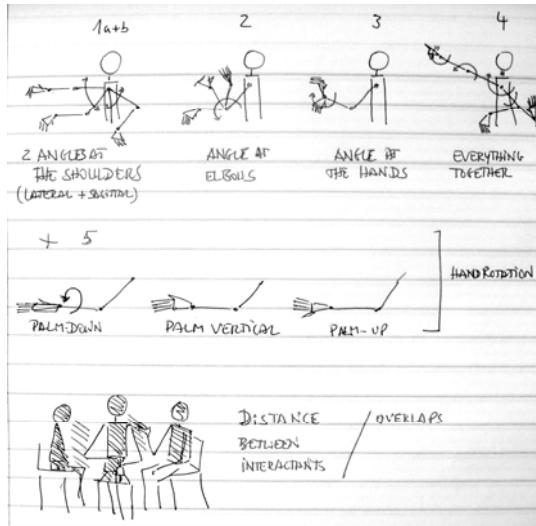 1a+b 2 3 4
2 ANGLES AT
THE SHOULDERS
(LATERAL + SAGITTAL)
ANGLE AT
ELBOWS
ANGLE AT
THE HANDS
EVERYTHING
TOGETHER
+ 5
HAND ROTATION
PALM-DOWN
PALM VERTICAL
PALM-UP
DISTANCE
BETWEEN
INTERACTANTS
OVERLAPS